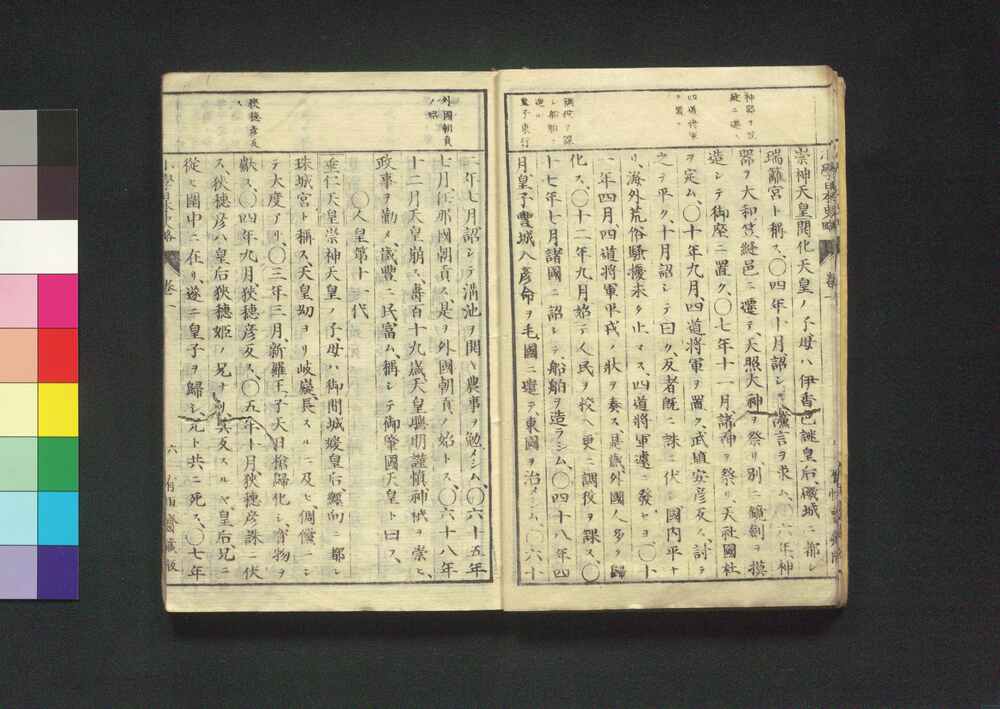 神器ヲ別殿ニ遷ス
四道将軍ヲ置ク
調役ヲ課シ船舶ヲ造ル
皇子東行
崇神天皇開化天皇ノ子母ハ伊香色謎皇后磯城ニ都シ
瑞籬宮ト稱ス、〇四年十月詔シテ讜言ヲ求ム、〇六年、神
器ヲ大和笠縫邑ニ遷テ、天照大神ヲ祭リ別ニ鏡劍ヲ摸
造シテ御座ニ置ク、〇七年十一月諸神ヲ祭リ、天社國社
ヲ定ム、〇十年九月四道将軍ヲ置ク、武埴安彦反ス、討テ
之ヲ平ク、十月詔シテ曰ク、反者既ニ誅ニ伏シ國内平ナ
リ、海外荒俗騒擾未タ止マス、四道将軍遽ニ發セヨ、〇十
一年四月、四道将軍平戎ノ状ヲ奏ス、是歳外國人多ク歸
化ス、〇十二年九月始テ人民ヲ校ヘ更ニ調役ヲ課ス、〇
十七年七月諸國ニ詔シテ、船舶ヲ造ラシム、〇四十八年四
月皇子豊城入彦命ヲ毛國ニ遣テ、東國ヲ治メシム、〇六十
外國朝貢ノ始
狭穂彦反ス
二年七月詔シテ溝池ヲ開ヘ農事ヲ勉メシム、〇六十五年
七月任那國朝貢ス、是ヲ外國朝貢ノ始トス、〇六十八年
十二月天皇崩ス、壽百十九歳、天皇聰明謹慎神祇ヲ崇ヒ、
政事ヲ勤メ、歳豊ニ民富ム、稱シテ御肇國天皇ト曰フ、
〇人皇第十一代
垂仁天皇崇神天皇ノ子、母ハ御間城媛皇后纒向ニ都シ
珠城宮ト稱ス天皇幼ヨリ岐嶷長スルニ及ヒ、倜儻ニシ
テ大度アリ、〇三年三月、新羅王ノ子天日槍歸化シ、寶物ヲ
獻ス、〇四年九月狭穂彦反ス、〇五年十月狭穂彦誅ニ伏
ス、狭穂彦ハ皇后狭穂姫ノ兄ナリ其反スルヤ皇后兄ニ
從ヒ圍中ニ在リ、遂ニ皇子ヲ歸シ、兄ト共ニ死ス、〇七年
小學日本史略 卷一 六